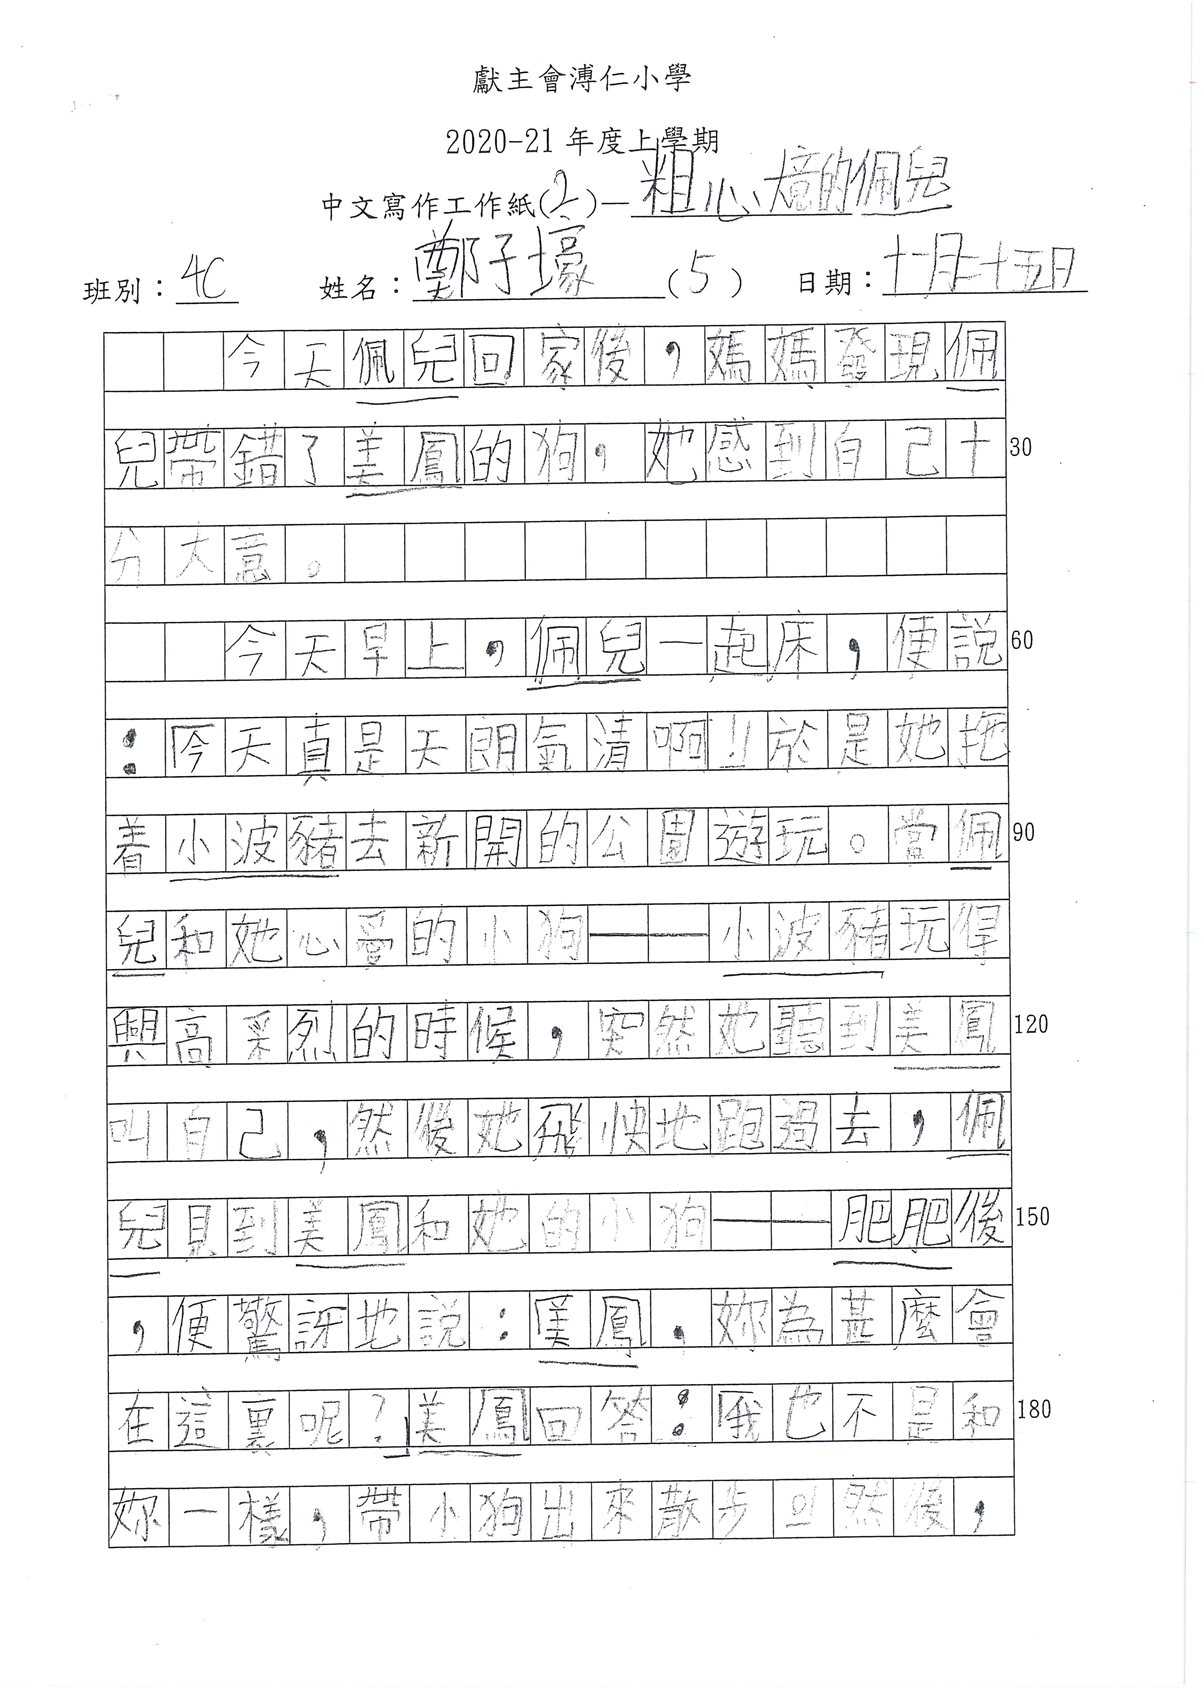 獻主會溥仁小學
2020-21 年度上學期
中文寫作工作紙(2)—粗心大意的佩兒
班別：4C 姓名：鄭子壕 (5) 日期：十一月二十五日
今天佩兒回家後，媽媽發現佩
兒帶錯了美鳳的狗，她感到自己十 30
分大意。
今天早上，佩兒一起床，便說 60
：「今天真是天朗氣清啊！」於是她拖
着小波豬去新開的公園遊玩。當佩 90
兒和她心愛的小狗——小波豬玩得
興高采烈的時候，突然她聽到美鳳 120
叫自己，然後她飛快地跑過去，佩
兒見到美鳳和她的小狗——肥肥後 150
，便驚訝地說：「美鳳，妳為甚麼會
在這裏呢？」美鳳回答：「我也不是和 180
妳一樣，帶小狗出來散步。」然後，